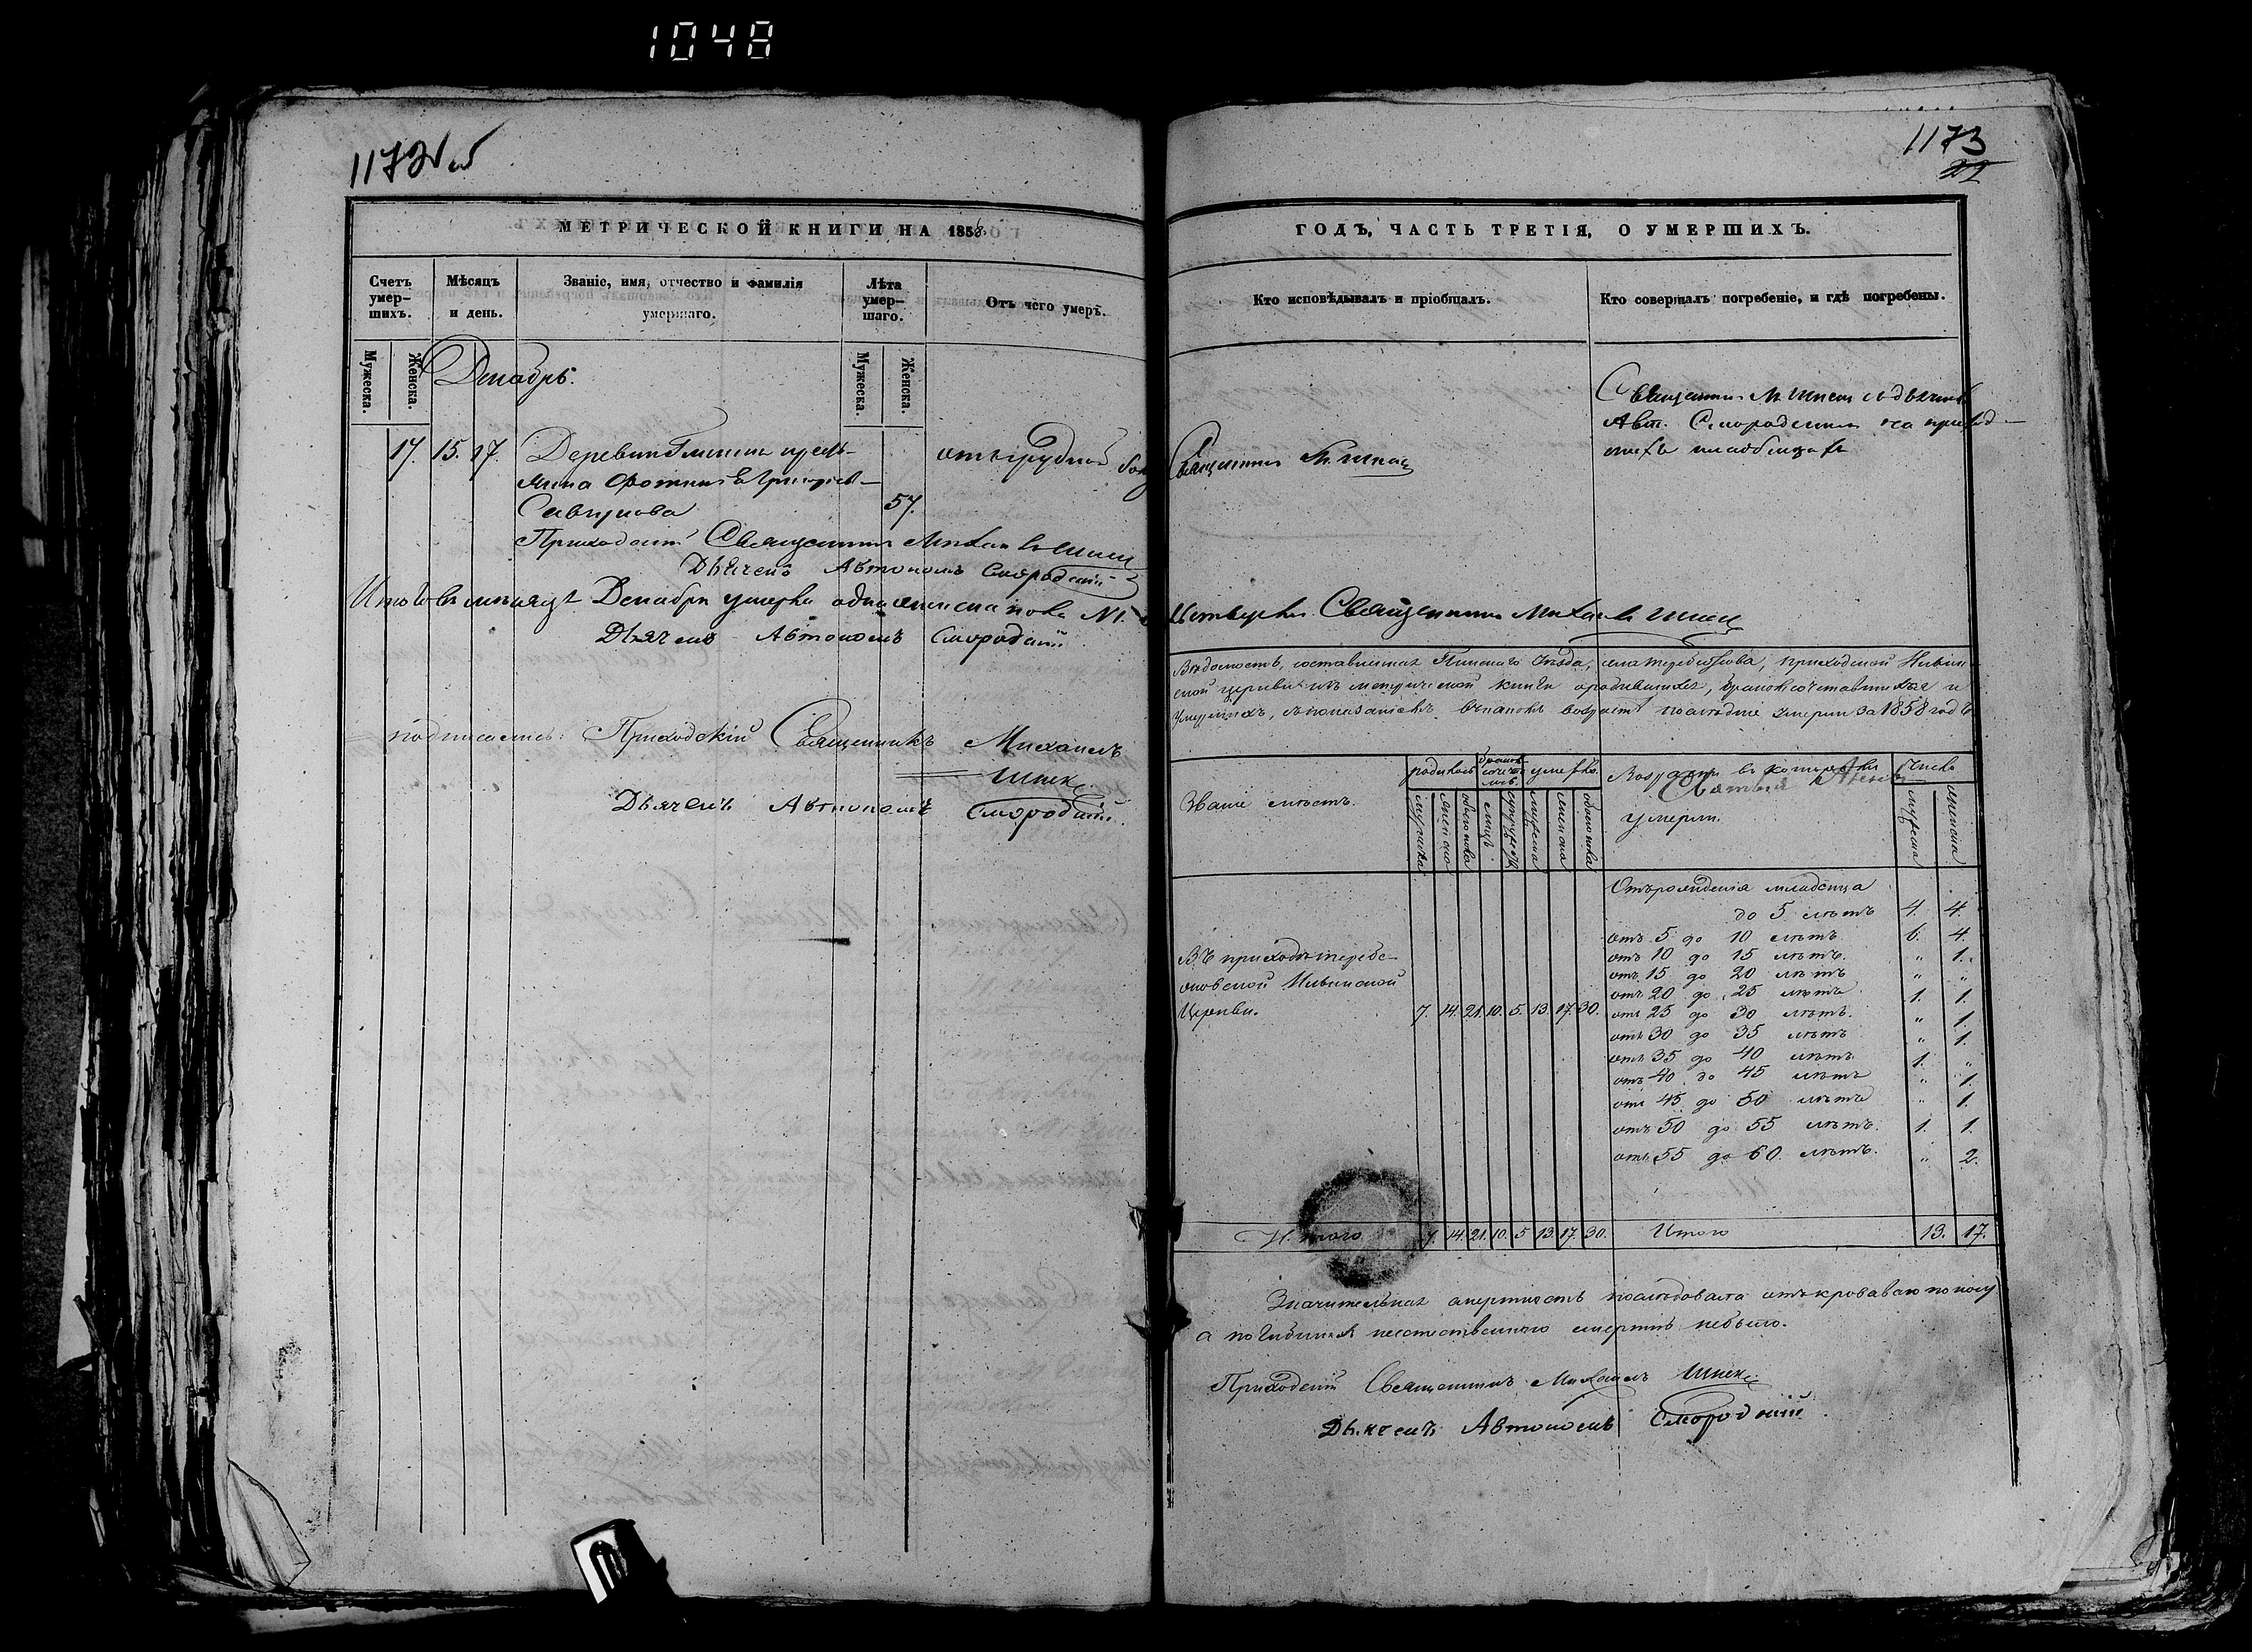 1048
1172 об
МЕТРИЧЕСКОЙ КНИГИ НА 1858
Счетъ умер-шихъ.
Мужеска.
Женска.
Мѣсяцъ и день.
Званіе, имя, отчество и фамилія умершаго.
Лѣта умер-шаго.
Мужеска.
Женска.
Отъ чего умеръ.
Декабрь.
17. 15. 17. Деревни
57.
отъ грудной
Приходскій Священникъ Михаилъ Шпек
Дьячекъ Автономъ Смородскій
Итого въ мѣсяцѣ Декабрѣ умерла одна женска пола №1.
Дьячекъ Автономъ Смородскій
подписались: Приходскій Священникъ Михаилъ
Шпек
Дьячекъ Автономъ Смородскій
1173
22
ГОДЪ, ЧАСТЬ ТРЕТІЯ, О УМЕРШИХЪ.
Кто исповѣдывалъ и пріобщалъ.
Кто совершалъ погребеніе, и гдѣ погребены.
Священникъ М. Шпек
Священникъ М. Шпек съ дьячкомъ
Авт. Смородскимъ на приход-
скомъ кладбищѣ
Священникъ Михаилъ Шпек
Вѣдомость, составленная Пинскаго уѣзда, приходской
церкви изъ метрической книги о родившихся, бракосочетавшихся и
умершихъ, съ показаніемъ въ какомъ возрастѣ послѣдніе умерли за 1858 годъ
Званіе мѣстъ.
родилось
умерло.
мужеска
женска
обоего пола
лицъ
супружествъ
мужеска
женска
обоего пола
Возрастъ въ которомъ
умерли.
Число
мужеска
женска
Отъ рожденія младенца
до 5 лѣтъ 4. 4.
отъ 5 до 10 лѣтъ 6. 4.
отъ 10 до 15 лѣтъ. " 1.
отъ 15 до 20 лѣтъ " "
отъ 20 до 25 лѣтъ 1. 1.
отъ 25 до 30 лѣтъ. " 1.
отъ 30 до 35 лѣтъ " 1.
отъ 35 до 40 лѣтъ 1. "
отъ 40 до 45 лѣтъ " 1.
отъ 45 до 50 лѣтъ " 1.
отъ 50 до 55 лѣтъ. 1. 1.
отъ 55 до 60 лѣтъ. " 2.
Въ приходѣ
Церкви. 7. 14. 21. 10. 5. 13. 17. 30.
Итого 7. 14. 21. 10. 5 13. 17. 30. Итого 13. 17.
Значительная смертность послѣдовала отъ кроваваго поносу
а погибшихъ неестественною смертію небыло.
Приходскій Священникъ Михаилъ Шпек
Дьячекъ Автономъ Смородскій